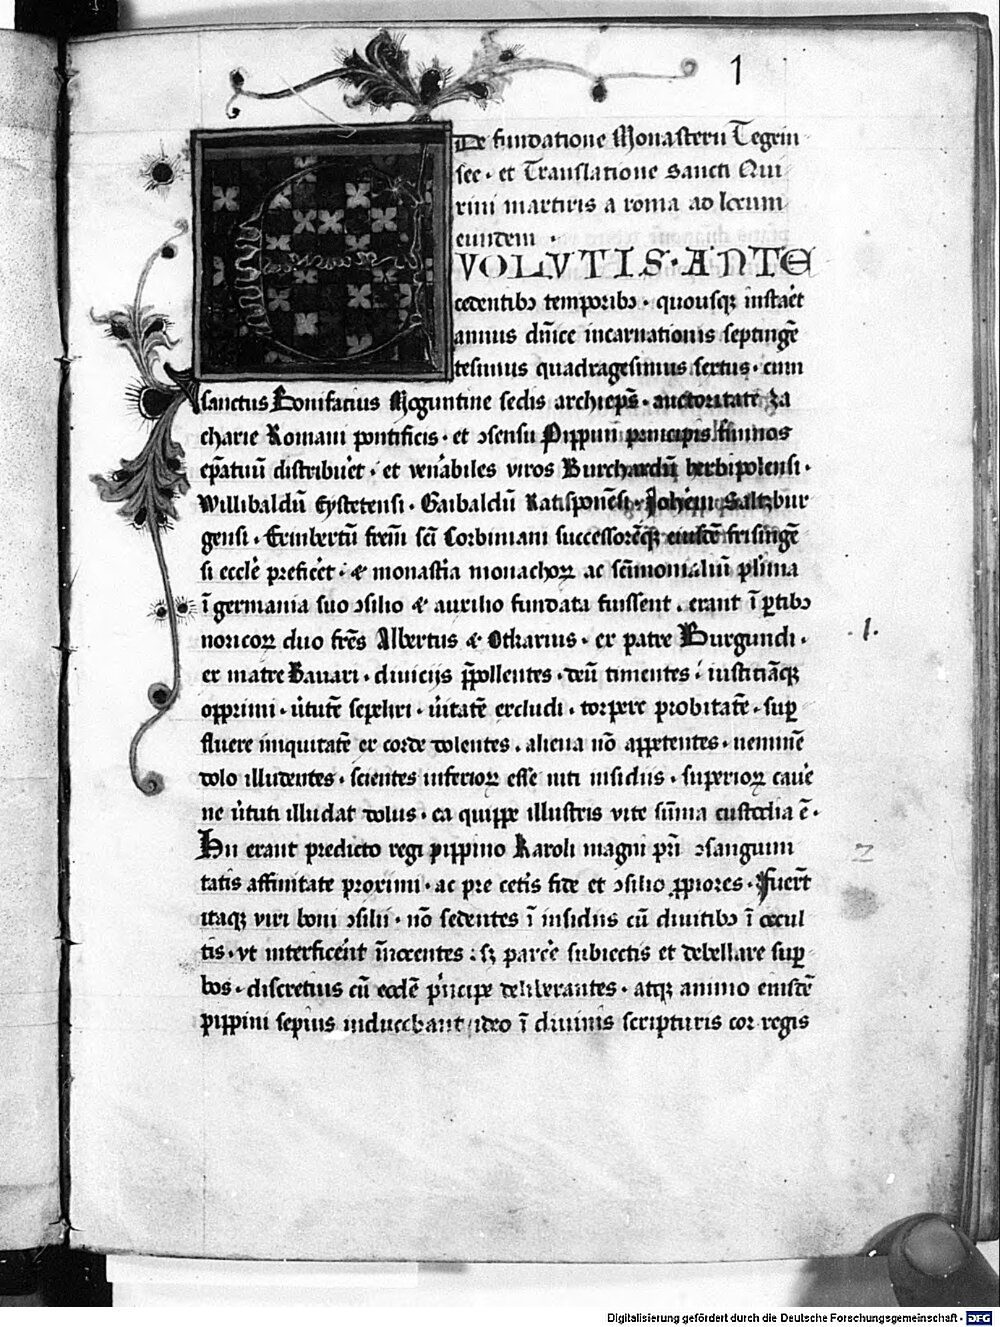 1
De fundatione Monasterii Tegrin
see · et Translatione Sancti Qui
rini martiris a roma ad locum
eundem ·
EVOLVTIS · ANTE
cedentibꝫ temporibꝫ · quousqꝫ instaēt
annus dn̄ice incarnationis septingē
tesimus quadragesimus sextus · cum
sanctus Bonifacius Moguntine sedis archiep̄s · auctoritate za
charie Romani pontificis · et ꝯsensu Pippini principis
ep̄atuū distribuēt · et ven̄abiles viros Burchardū herbipolensi ·
Willibaldū Eystetensi · Gaibaldū Ratisponēsi · Joh̄em Saltzbur
gensi · Erimbertū frēm sc̄i Corbiniani successorēqꝫ eiusdē frisingē
si eccl̄e preficēt · & monast̄ia monachoꝝ ac sc̄imonialiū pl̄ima
ī germania suo ꝯsilio & auxilio fundata fuissent · erant ī ꝑtibꝫ
noricoꝝ duo frēs Albertus & Otkarius · ex patre Burgundi ·
· 1 ·
ex matre Bavari · diviciis p̄pollentes · deū timentes · iusticiāqꝫ
opprimi · v̄tutē sepeliri · v̄itatē excludi · torpere probitatē · suꝑ
fluere iniquitatē ex corde dolentes · aliena nō appetentes · neminē
dolo illudentes · scientes inferioꝝ esse niti insidiis · superioꝝ cavē
ne v̄tuti illudat dolus · ea quippe illustris vite sūma custodia ē ·
Hii erant predicto regi pippino Karoli magni pr̄i ꝯsanguini
2
tatis affinitate proximi · ac pre cet̄is fide et ꝯsilio ꝓpiores · Fuer̄t
itaqꝫ viri boni ꝯsilii · nō sedentes ī insidiis cū divitibꝫ ī occul
tis · vt interficēnt īnocentes : sꝫ parcē subiectis et debellare suꝑ
bos · discretius cū eodē p̄ncipe deliberantes · atqꝫ animo eiusdē
pippini sepius inducebant ideo ī divinis scripturis cor regis
Digitalisierung gefördert durch die Deutsche Forschungsgemeinschaft - DFG